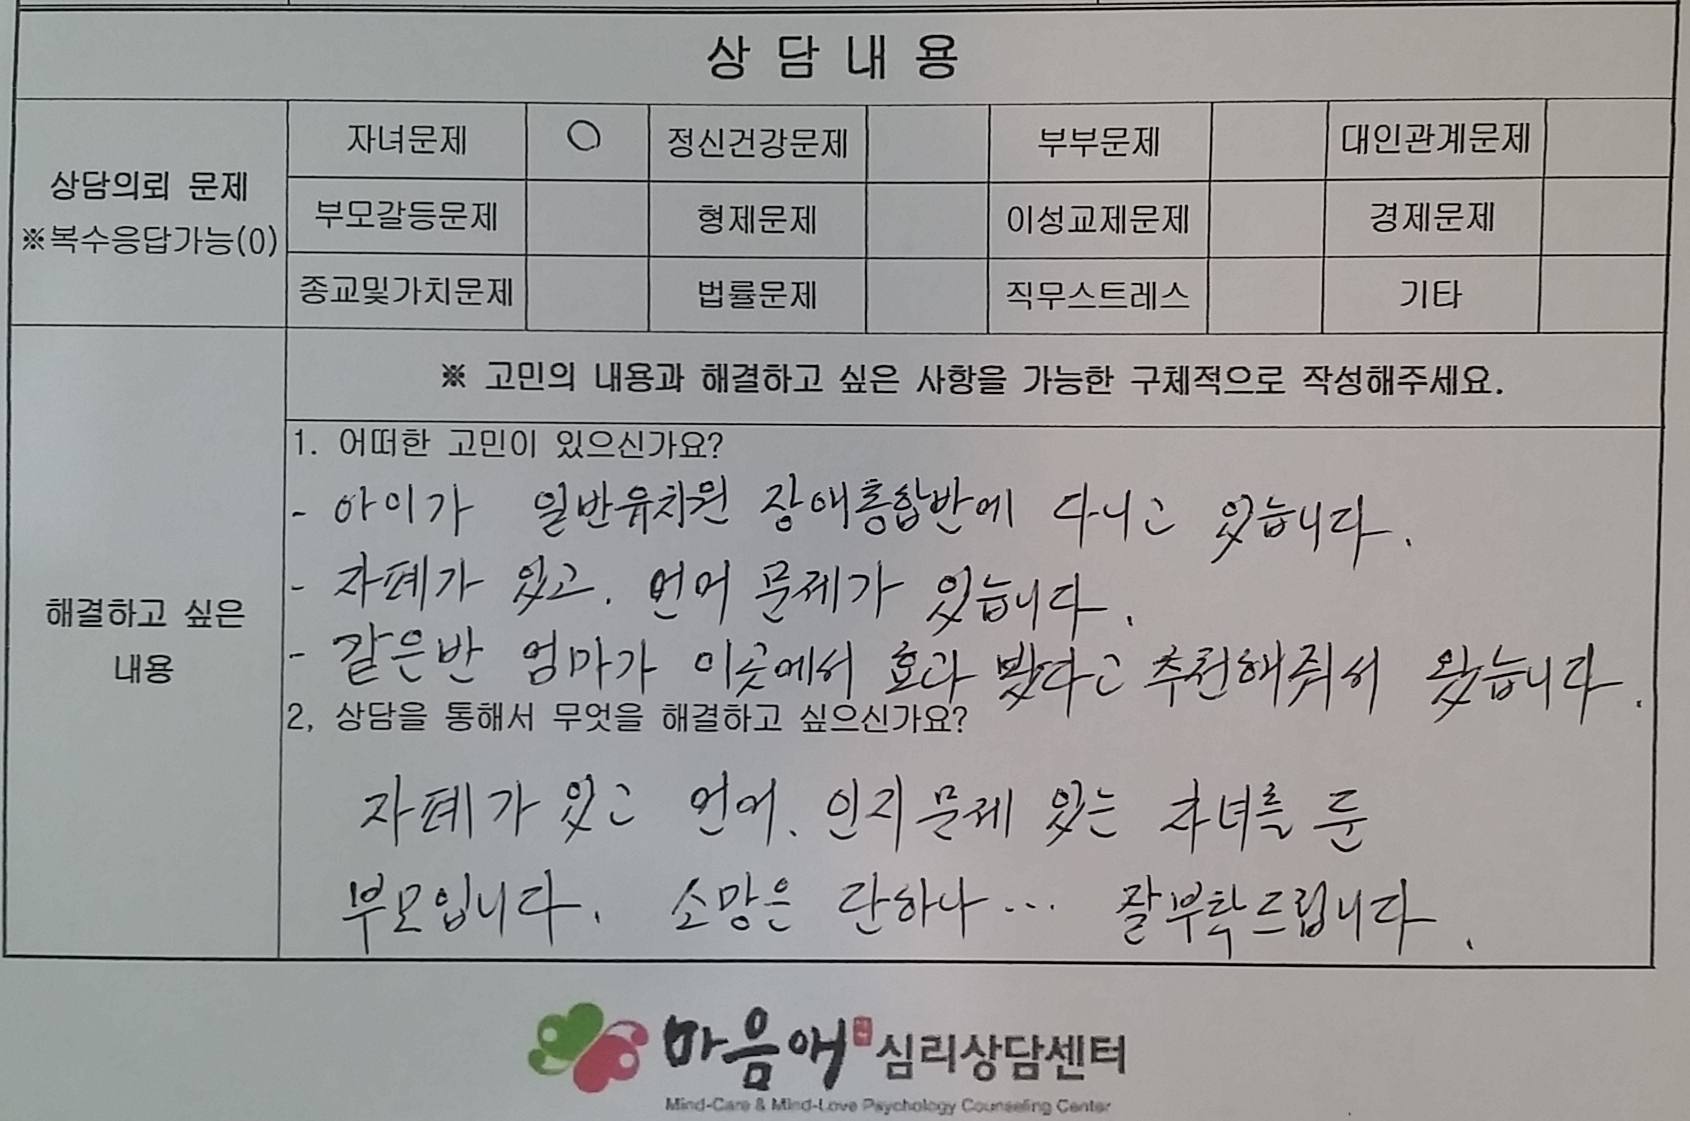 상 담 내 용
상담의뢰 문제
※복수응답가능(0)
자녀문제 ○ 정신건강문제 부부문제 대인관계문제
부모갈등문제 형제문제 이성교제문제 경제문제
종교및가치문제 법률문제 직무스트레스 기타
해결하고 싶은
내용
※ 고민의 내용과 해결하고 싶은 사항을 가능한 구체적으로 작성해주세요.
1. 어떠한 고민이 있으신가요?
- 아이가 일반유치원 장애통합반에 다니고 있습니다.
- 자폐가 있고. 언어 문제가 있습니다.
- 같은반 엄마가 이곳에서 효과 봤다고 추천해줘서 왔습니다.
2, 상담을 통해서 무엇을 해결하고 싶으신가요?
자폐가 있고 언어. 인지 문제 있는 자녀를 둔
부모입니다. 소망은 단하나... 잘부탁드립니다.
마음애 심리상담센터
Mind-Care & Mind-Love Psychology Counseling Center